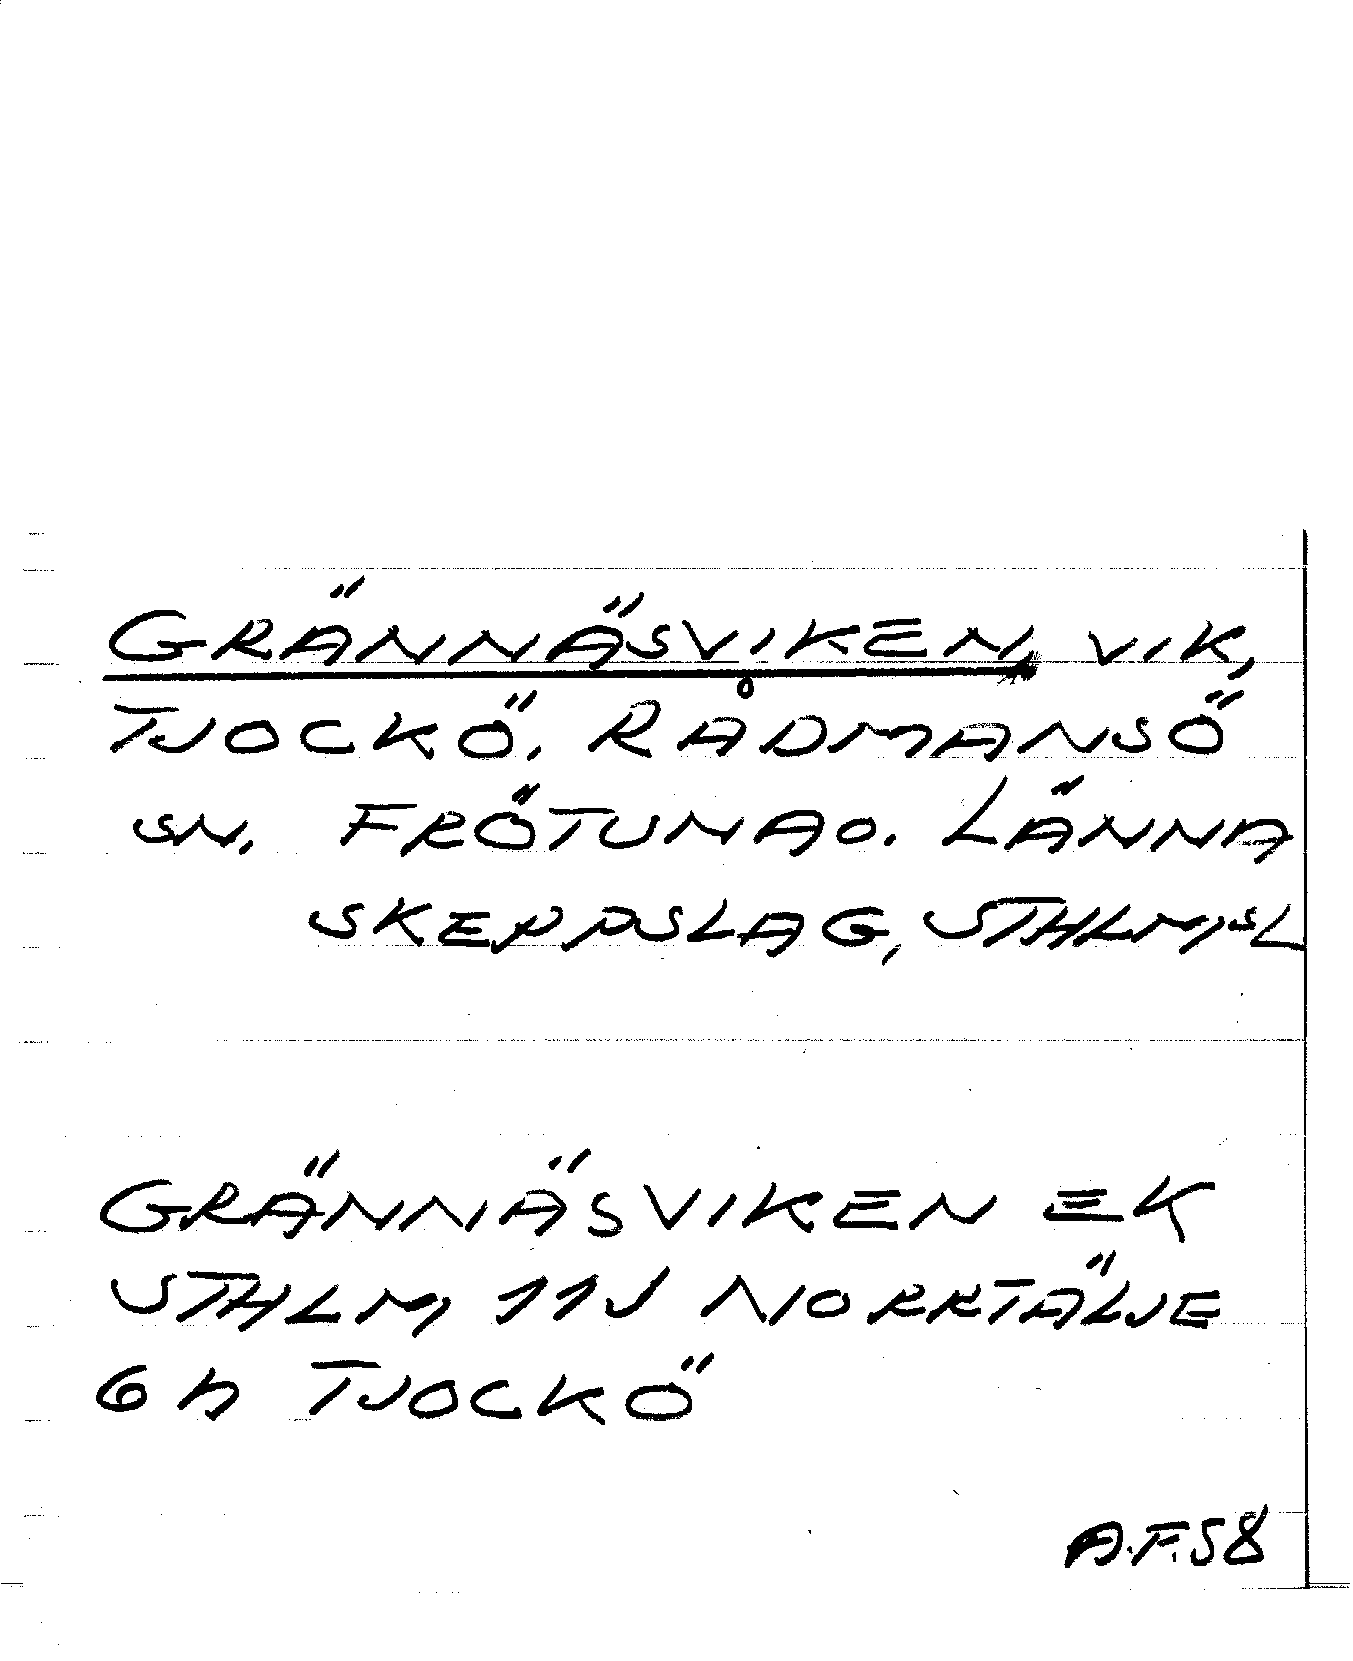 GRÄNNÄSVIKEN, VIK,
TJOCKÖ, RÅDMANSÖ
SN. FRÖTUNA O. LÄNNA
SKEPPSLAG, STHLMSL
GRÄNNÄSVIKEN EK
STHLM 11J NORRTÄLJE
6h TJOCKÖ
A.F.58